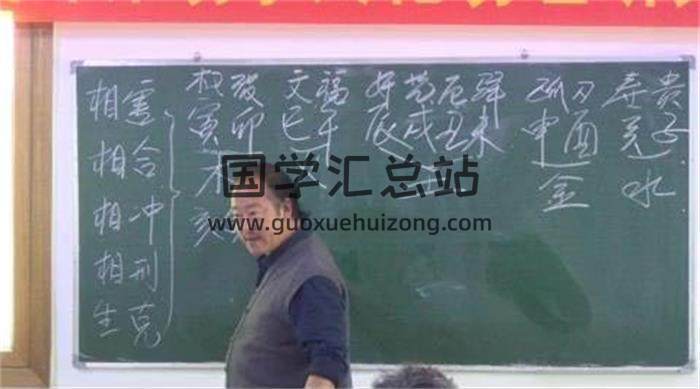 相害
相合
相冲
相刑
生克
权破 文福 奸艺厄驿 孤刃 寿贵
寅卯 巳午 辰戌丑未 申酉 亥子
木 金 水
国学汇总站
www.guoxuehuizong.com